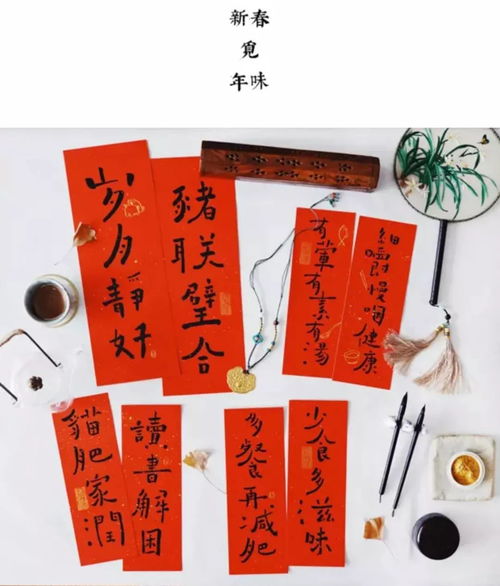 新春
覓
年味
岁月靜好
豬联璧合
有葷有素有湯
細嚼慢咽健康
貓肥家潤
讀書解困
多餐再減肥
少食多滋味